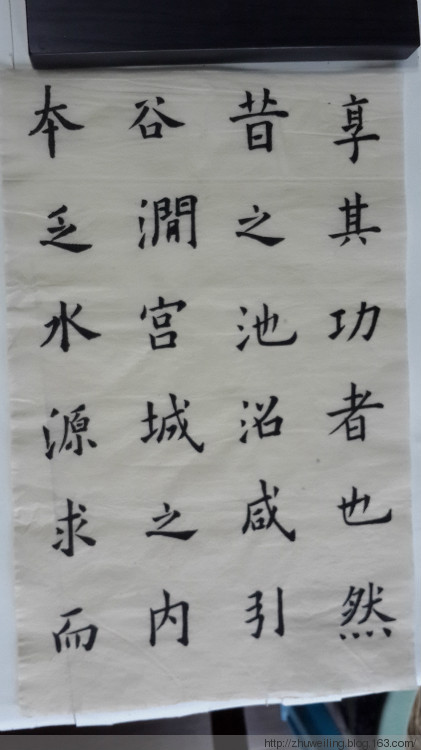 享其功者也然
昔之池沼咸引
谷澗宫城之内
本乏水源求而
http://zhuweiling.blog.163.com/